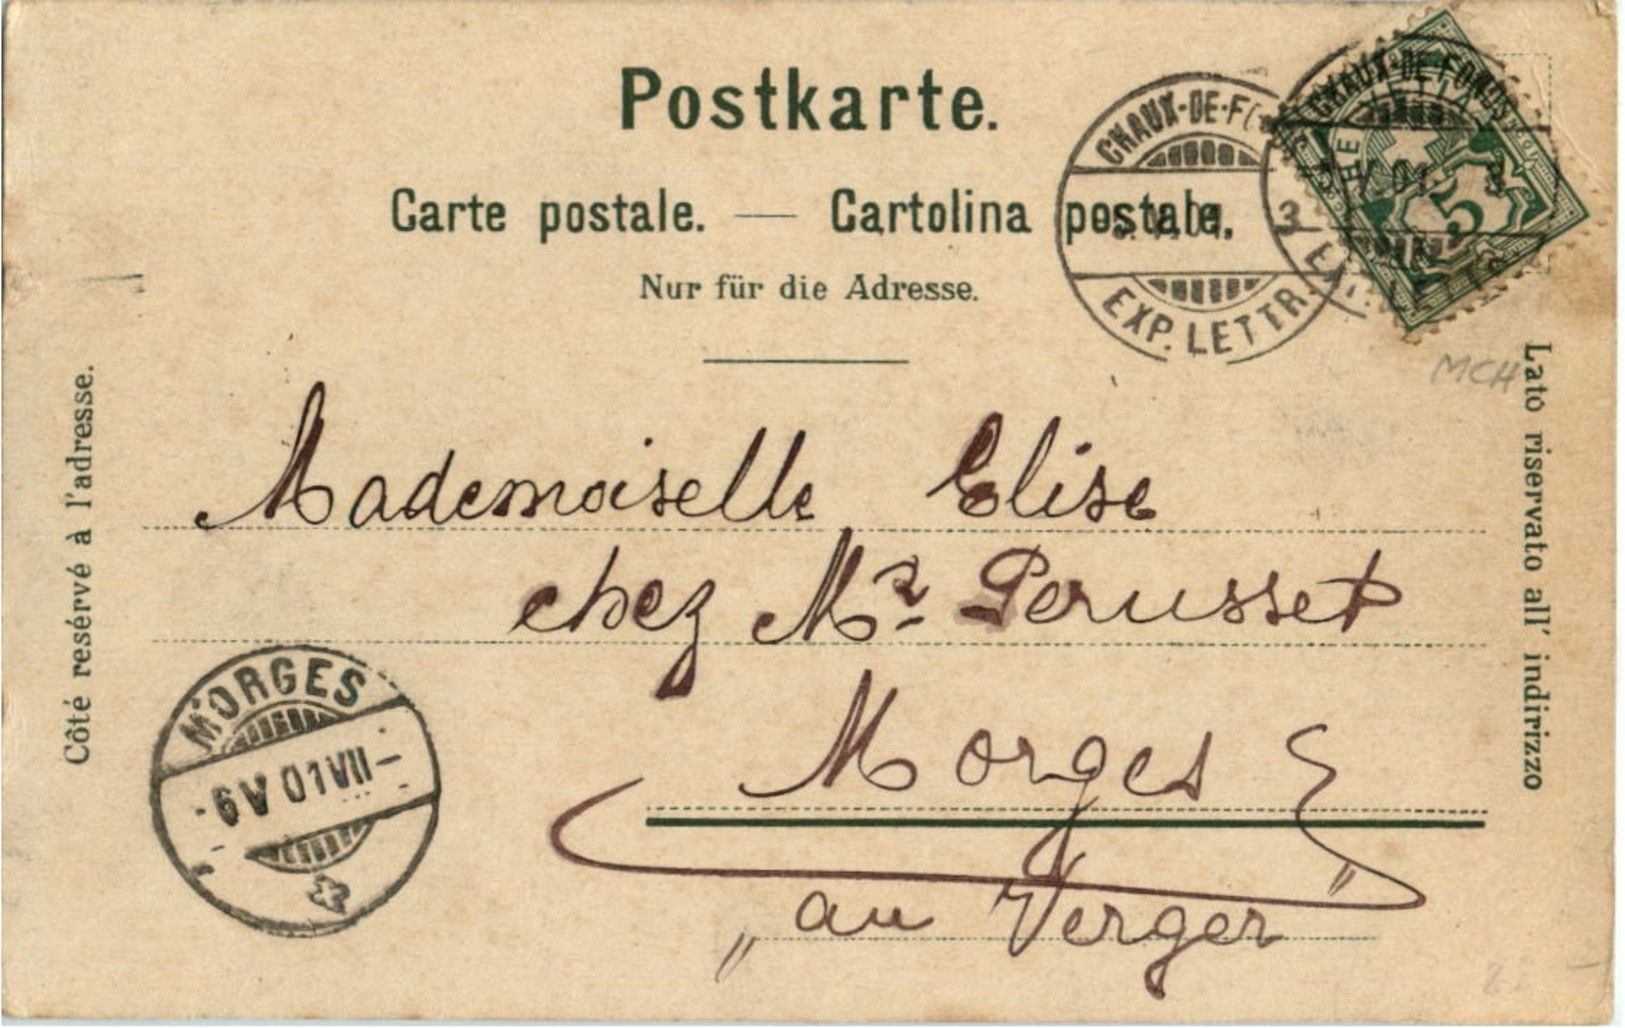 Postkarte.
Carte postale. — Cartolina postale.
Nur für die Adresse.
CHAUX-DE-F
EXP. LETTR.
3
CHAUX-DE-FONDS
V 01
HELVETIA
5
MCH
Côté resérvé à l'adresse.
Lato riservato all' indirizzo
Mademoiselle Elise
chez Mr Perusset
Morges
„au Verger"
MORGES
6 V 01 VII